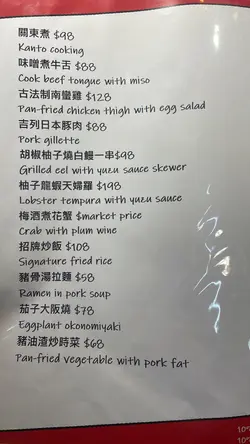 關東煮 $98
Kanto cooking
味噌煮牛舌 $88
Cook beef tongue with miso
古法制南蠻雞 $128
Pan-fried chicken thigh with egg salad
吉列日本豚肉 $88
Pork gillette
胡椒柚子燒白鰻一串$98
Grilled eel with yuzu sauce skewer
柚子龍蝦天婦羅 $198
Lobster tempura with yuzu sauce
梅酒煮花蟹 $market price
Crab with plum wine
招牌炒飯 $108
Signature fried rice
豬骨湯拉麵 $58
Ramen in pork soup
茄子大阪燒 $78
Eggplant okonomiyaki
豬油渣炒時菜 $68
Pan-fried vegetable with pork fat